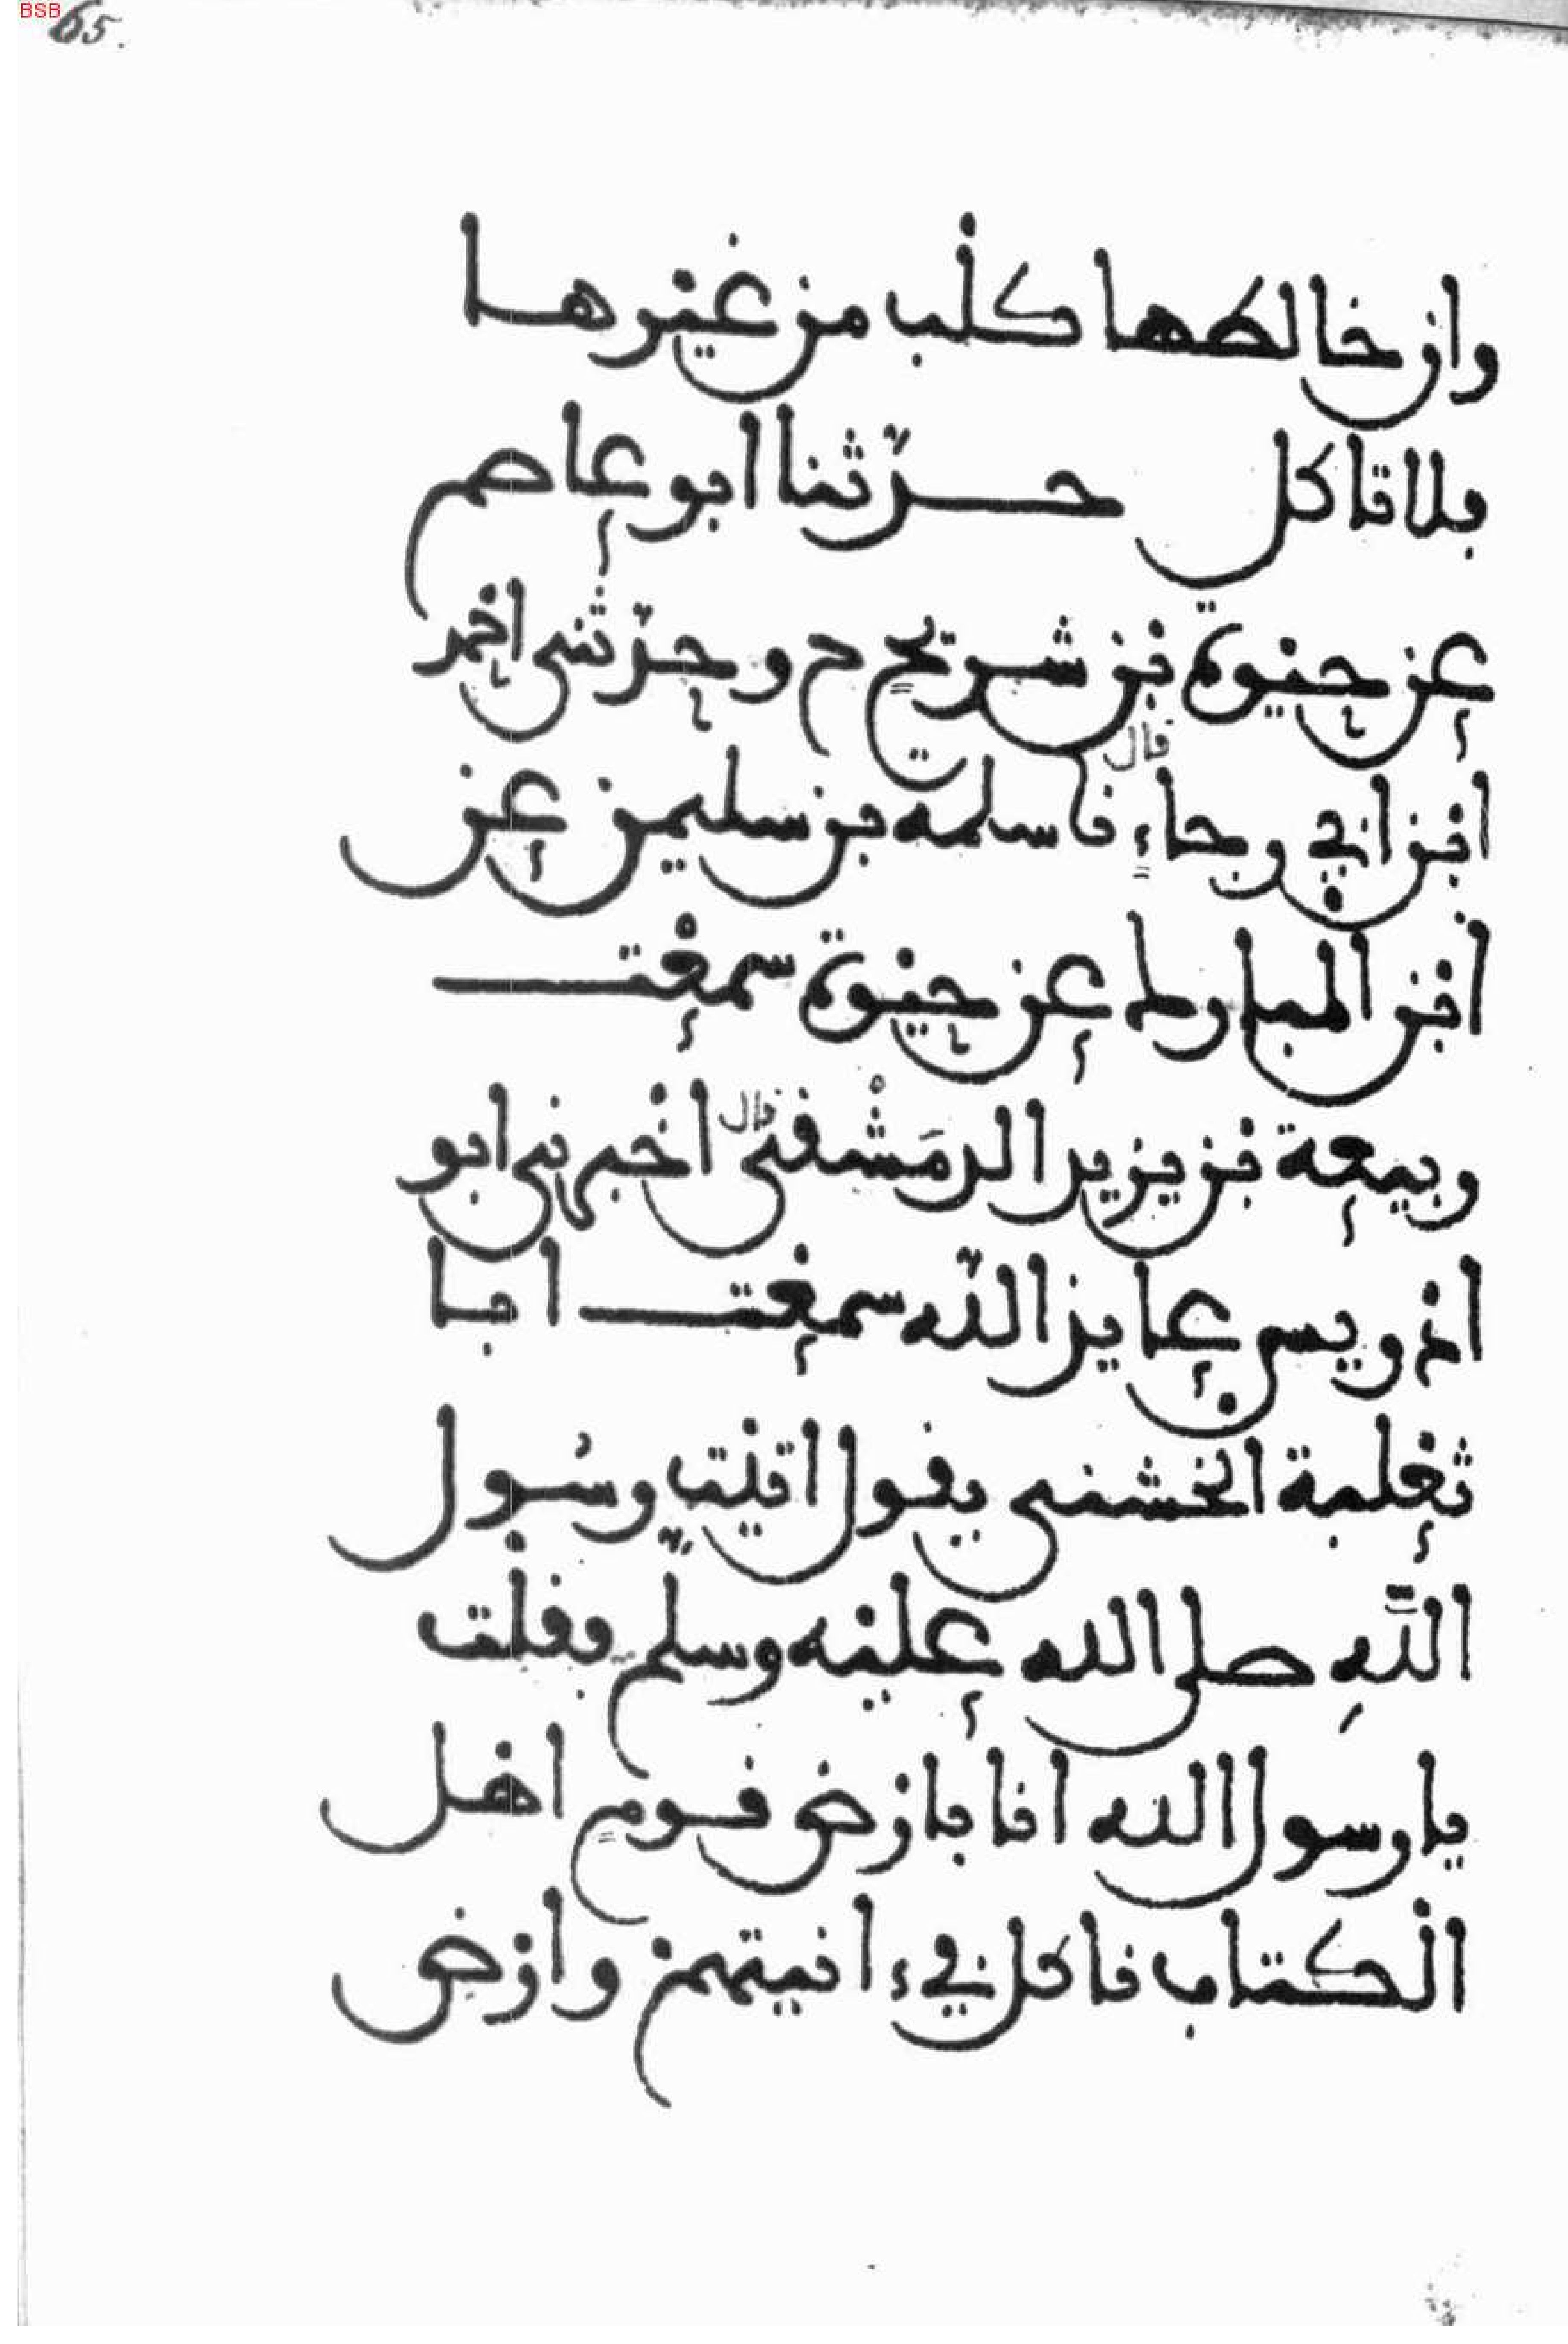 BSB
65.
وان خالطها كلب من غيرها
فلا تاكل حدثنا ابو عاصم
عن حيوة بن شريح ح وحدثني احمد
قال
ابن ابي رجاء نا سلمه بن سليمن عن
ابن المبارك عن حيوة سمعت
ربيعة بن يزيد الدمشقي قال اخبرني ابو
ادريس عايذ الله سمعت ابا
ثعلبة الخشني يقول اتيت رسول
الله صلى الله عليه وسلم فقلت
يا رسول الله انا بارض قوم اهل
الكتاب ناكل في ءانيتهم وارض